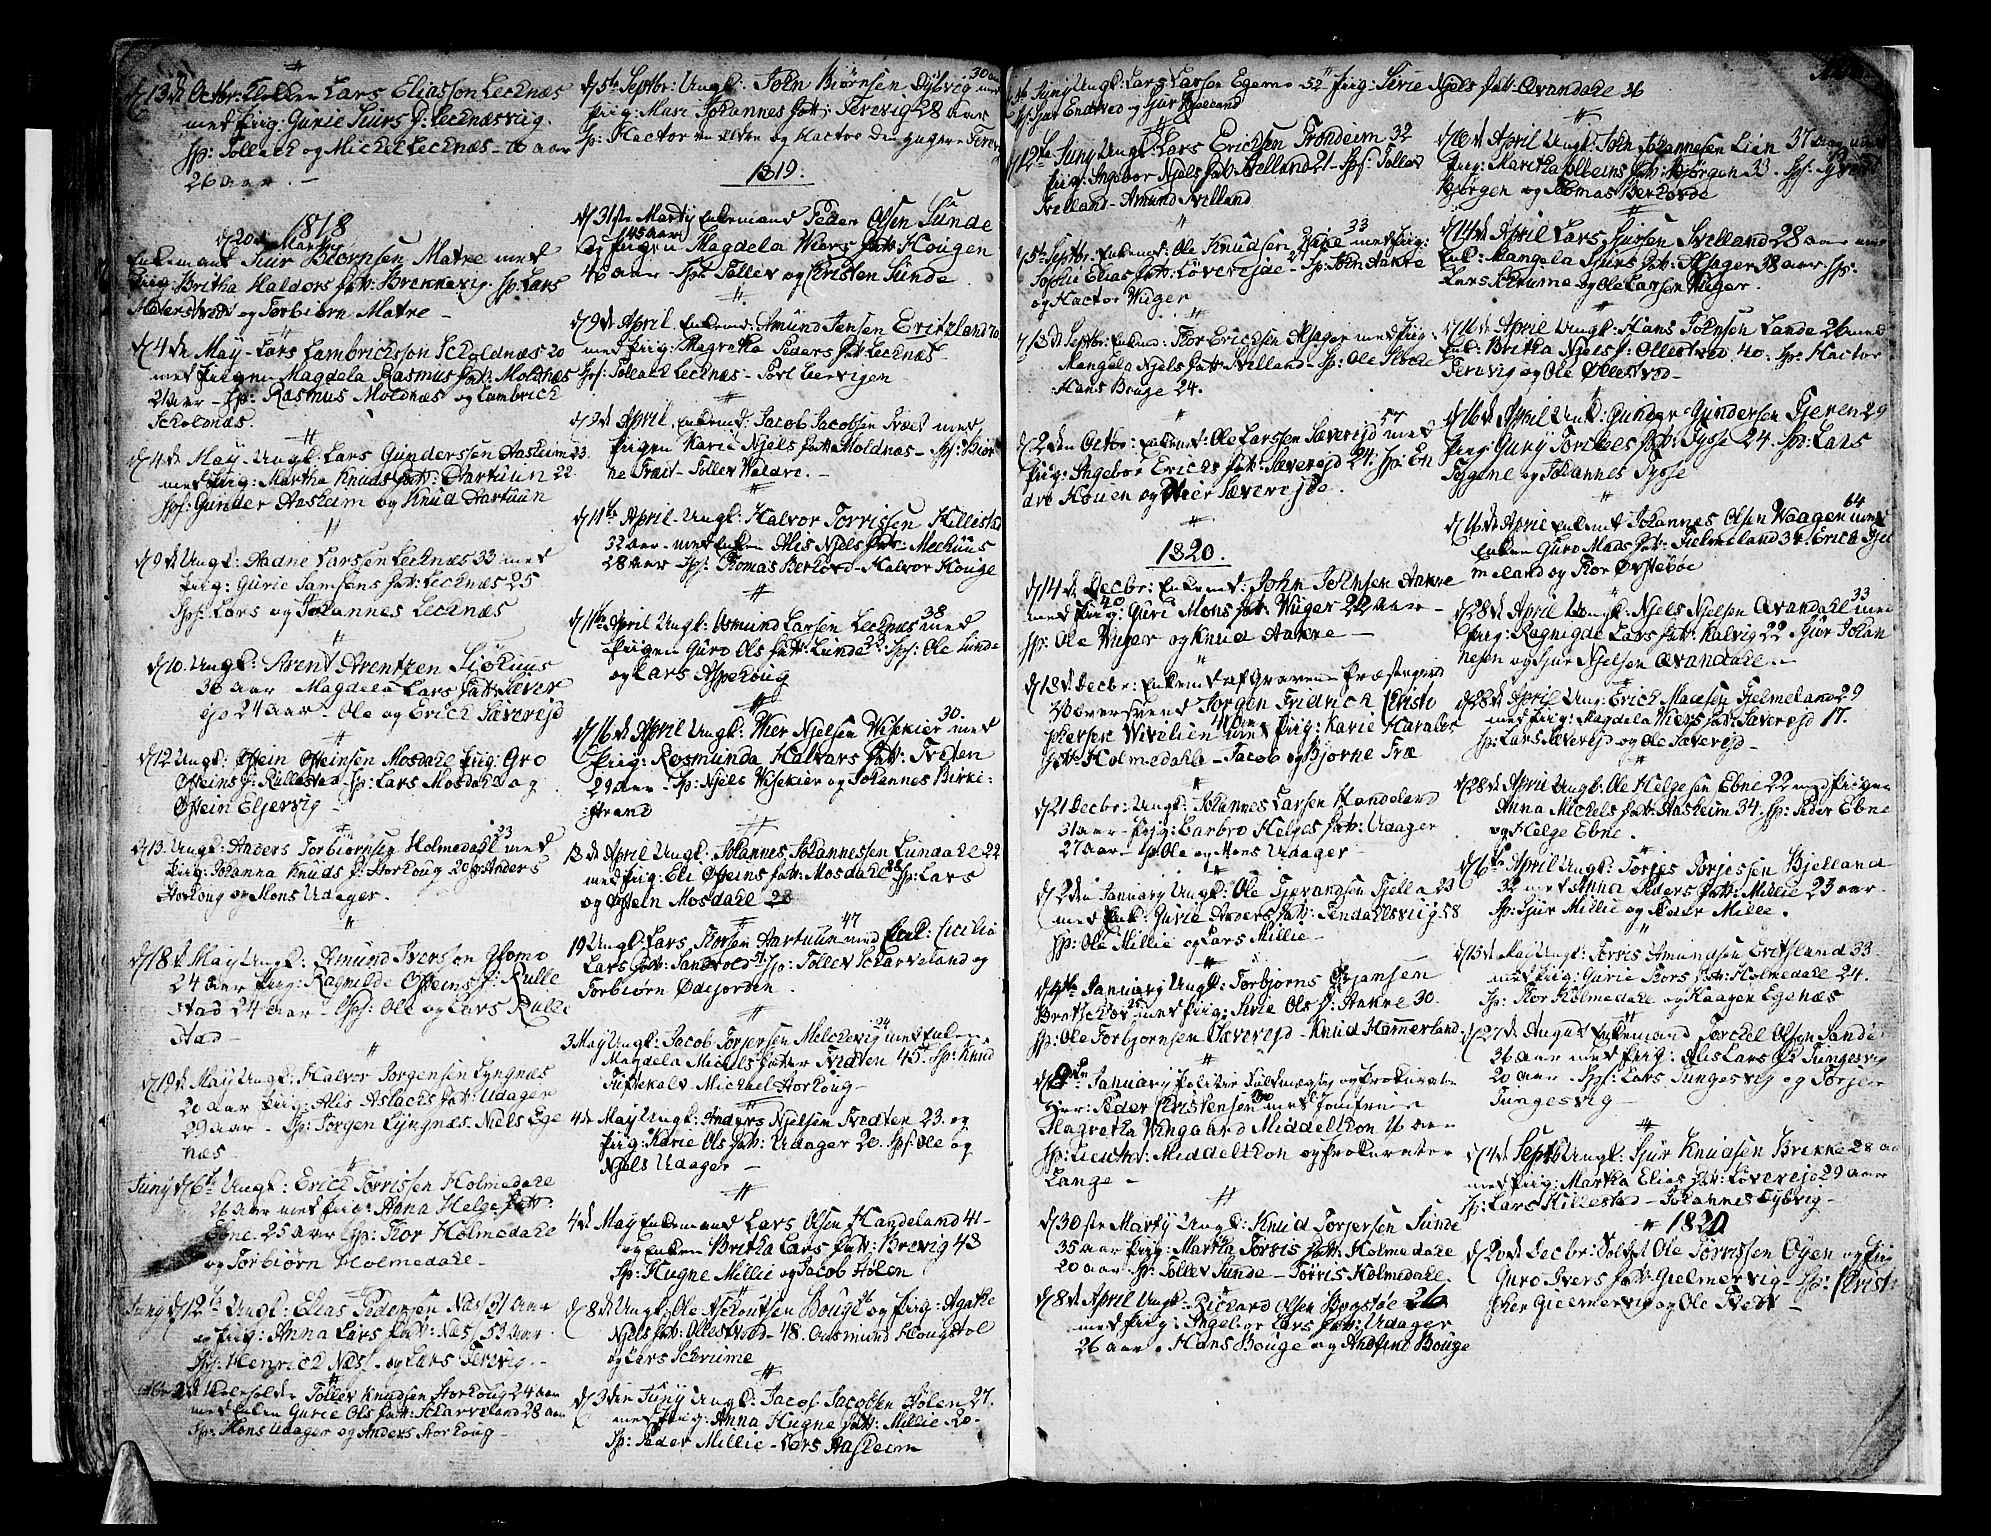 d 13de Octbr: Lars Eliasson Lecknæs
med Piig: Gurie Siurs f: Lecknæsviig.
Sp: Tollach og Michel Lecknæs - 70 aar
26 aar. -
1818
d 20de Marty
Enkemand Siur Biørnsen Matre med
Piig: Britha Haldors datt: Brekkevig. Sp: Lars
og Torbiørn Matre -
d 4de May - Lars Lambricksson Scholdnæs 20
med Piigen Magdela Rasmus datt: Moldnæs
21 aar - Sp: Rasmus Moldnæs og Lambrick
Scholdnæs.
d 4de May - Ungk: Lars Gunderssen Aasheim 23.
med Piig: Martha Knuds datt: Hartuun 22
Sp: Gunder Aasheim og Knud Hartuun
d 9de Ungk: Aadne Larssen Lecknæs 33 med
Piig: Gurie Samsons datt: Lecknæs 25
Sp: Lars og Johannes Lecknæs
d 10. Ungk: Arent Arentzen
36 aar - Magdela Lars datt: Sæver
ejd 24 aar - Ole og Erick Særereid
d 12 Ungk: Østein Østeinsen Mosdahl Piig: Gro
Østeins d: Rullestad - Sp: Lars Mosdahl og
Østein Eljervig -
d 13. Ungk: Anders Torbiørnsen Holmedahl 23 med
Piig: Johanna Knuds d: Storhoug 20 Sp: Anders
Storhoug og Mons Udager.
d 18de May Ungk: Amund Iverson
24 aar Piig: Ragnilde Østeins d: Rulle
stad 24 aar - Sp: Ole og Lars Rulle
stad -
d 19de May Ungk: Halvor Jorgensen Lyngnæs
20 aar Piig: Alis Aslachs datt: Udager
29 aar - Sp: Jorgen Lyngnæs Niels Ege
næs -
Juny d 6te Ungk: Erick Tørrissen Holmedahl
26 aar med Piig: Anna Helge datt:
Ebne 25 aar Sp: Thor Holmedahl
og Torbiørn Holmedahl -
Juny d 12te Ungk: Elias Pedersen Næs 31 aar
og Piig: Anna Lars datt: Næs, 53 aar.
Sp: Henrich Næs. og Lars Tervig. -
Tollev Knudsen Storhoug 24 aar
med Enken Gurie Ols datt: Scharveland 28 aar
Sp: Mons Udager og Anders Storhoug -
d 5te Septbr: Ungk: John Biørnsen Dybvig 30 aar med
Piig: Mari Johannes datt: Tervig 28 aar
Sp: Hactor en Elder og Hactor den yngere Tervig
1819.
d 31ste Marty Enkemand Peder Olsen Sunde
45 aar
og Piigen Magdela Wiers datt: Hougen
40 aar - Sp: Tollev og Christen Sunde
d 9de April Enkemd: Amund Jensen Eritzland 70
med Piig: Magretha Peders datt: Lecknæs
Sp: Tollach Lecknæs - Poul Leervigen
d 9de April Enkemd: Jacob Jacobsen Træet med
Piigen Karie Njels datt: Moldnæs - Sp: Biør
ne Træet - Tollev Waldre. -
d 11te April Ungk: Halvor Torrissen Hillestad
32 aar - med Enken Alis Njels datt: Mechuus
28 aar Sp: Thomas Berhovd - Halvor Houge
d 11te April Ungk: Osmund Larsen Lecknæs 38 med
Piigen Guro Ols datt: Sunde 22 Sp: Ole Sunde
og Lars Aspehoug
d 16de April Ungk: Wier Njelsen Wisekier 30. med
Piig: Rosmunda Halvars datt: Tveten
29 aar - Sp: Njels Wisekier og Johannes Birke:
:strand
13de April Ungk: Johannes Johannessen Lundahl 22
med Piig: Eli Østeins datt: Mosdahl 28 Sp: Lars
og Østein Mosdahl 28
19 Ungk: Lars Thorsen Aartuun 47 med Enk: Cecilia
Lars datt: Sandvold 51 Sp: Tollev Scharveland og
Torbiørn Ødejorden
3 May Ungk: Jacob Torjersen Milchevig 24 med Enken
Magdela Michels datter Tvedten 45. Sp: Knud
Tuftekalv Michael Storhoug -
4de May Ungk: Anders Njelsen Tvedten 23. og
Piig: Karie Ols datt: Udager 20. Sp: Ole og
Njels Udager -
4de May Enkemand Lars Olsen Handeland 41 -
og Enken Britha Lars datt: Brevig 43
Sp: Hugne Millie og Jacob Holen
d 8de Ungk: Ole Ashoutsen Bouge 26 og Piig: Agathe
Njels datt: Ollestvedt - 48. Ousmund Hougstol
og Lars Schrume
d 3die Juny Ungk: Jacob Jacobsen Holen 27.
med Piig: Anna Hugne datt: Millie 20 -
Sp: Peder Millie - Lars Aasheim
Juny Ungk: Lars Larsen Egernæ 52 Piig: Serie Njels datt: Qvandahl 36
Sp: Endtved og Siur Hielland
d 12te Juny Ungk: Lars Ericksen Trondeim 32
Piig: Ingebor Njels datt: Svelland 21 - Sp: Tollev
Svelland - Amund Svelland
d 5te Septbr. Enkemd: Ole Knudsen 33 med Piig:
Sophie Elias datt: Løverejde - 21 Sp: John Aakre
og Hactor Wiiger
d 13de Septbr: Enkemd: Thor Ericksen Alsager med Piig:
Mangela Njels datt: Svelland - Sp: Ole
Hans Bouge 24.
d 2den Octbr: Enkemd: Ole Larssen Særerejd 57 med
Piig: Ingebor Ericks datt: Særerejd 24. Sp: En
dre Houen og Wier Særerejde.
1820.
d 14de Decbr: Enkemd: John Johnsen Aakre
40
med Piig: Guri Mons datt: Wiiger 22 aar -
Sp: Ole Wiiger og Knud Aakre -
d 13de Decbr: Enkemd af Graven Præstegield
Jorgen Fridrich Christo
phersen Wivelien 41 aar med Piig: Karie Haralds
datt: Holmedahl - Jacob og Bjørne Træ
d 21 Decbr: Ungk: Johannes Larsen Handeland
31 aar - Piig: Barbro Helges datt: Udager
27 aar - Sp: Ole og Mons Udager -
d 2den January Ungk: Ole Tjerandsen Fjella 23
med Enk: Gurie Anders datt: Tendahlsviig 58
Sp: Ole Millie og Lars Millie -
d 4te January Ungk: Torbjorns
Bratschov 25 med Piig: Sirie Ols d: Aakre 30
Sp: Ole Torbjornsen Særerejd - Knud Hammerland.
d 9de January Politie Fuldmægtig og Prokurator
Herr: Peder Christensen 30 med Jomfrue
Magretha Wingaard Middelthon 46 aar
Sp: Lieutn: Middelthon og Prokurator
Lange -
d 30te Marty Ungk: Knud Torjersen Sunde
35 aar Piig: Martha Torris datt: Holmedahl
20 aar. Sp: Tollev Sunde - Tørris Holmedahl.
d 8de April Ungk: Richard Olsen Brostøe 26
med Piig: Ingebor Lars datt: Udager
26 aar. Hans Bouge og Andfind Bouge
d 10de April Ungk: John Johannesen Lien 37 aar med
Piig: Maritha Olbeins datt: Bjørgen 33. Sp:
Bjørgen og Thomas Berhovde
d 14de April Lars Sjursen Svelland 28 aar med
Enk: Mangela Sjurs datt: Alsager 38 aar Sp:
Lars Schrume og Ole Larsen Wiiger.
d 16de April Ungk: Hans Johnsen Lande 26 med
Enk: Britha Njels d: Ollestved 40. Sp: Hactor
Tervig og Ole Øllestved -
d 16de April Ungk: Gunder Gundersen Tjeren 29
Piig: Guny Torckels datt: Fysse 24. Sp: Lars
Tejgene og Johannes Fysse
d 16de April Enkemd Johannes Olsen Waagen 64 med
Enken Guro Mads datt: Fielmeland 34. Erick Fiel
meland og Thor Øvstebøe
d 28de April Ungk: Njels Njelsen Qvandahl 33 med
Piig: Ragnigde Lars datt: Kalvig 22 Sjur Johan
nesen og Sjur Njelsen Qvandahl. -
d 28de April Ungk: Erick Madsen Fjelmeland 29
med Piig: Magdela Wiers datt: Saverejd 17.
Sp: Lars Særerejd og Ole Særerejd -
d 28de April Ungk: Ole Helgesen Ebne 22 med Piigen
Anna Michels datt: Aasheim 34. Sp: Peder Ebne
og Helge Ebne.
d 6te April Ungk: Torjes Torjessen Bjelland
32 med Anna Peders datt: Millie 23 aar.
Sp: Sjur Millie og Peder Millie.
d 15de May Ungk: Torris Amundsen Eritzland 33.
med Piig: Gurie Thors datt: Holmedahl 24.
Sp: Thor Holmedahl og Haagen Egenæs
d 27de August Enkemand Torckel Olsen Sande
36 aar med Piig: Alis Lars d: Tungesvig
20 aar - Sp: Lars Tungesvig og Torjer
Tungesvig -
d 4de Septb Ungk: Sjur Knudsen Brekke 28 aar
med Piig: Martha Elias dat: Løverejd 29 aar
Sp: Lars Hillestad - Johannes Dybvig -
1820
d 20de Decbr: Soldat Ole Tørrissen Øyen og Piig
Guro Ivers datt: Gielmervig - Sp: Christ:
pher Gielmervig og Ole Tvedt -